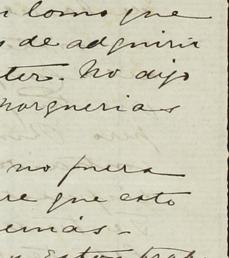 lomo que
de adquirir
ter. No dijo
Morguerias
no fuera
re que esto
emás.